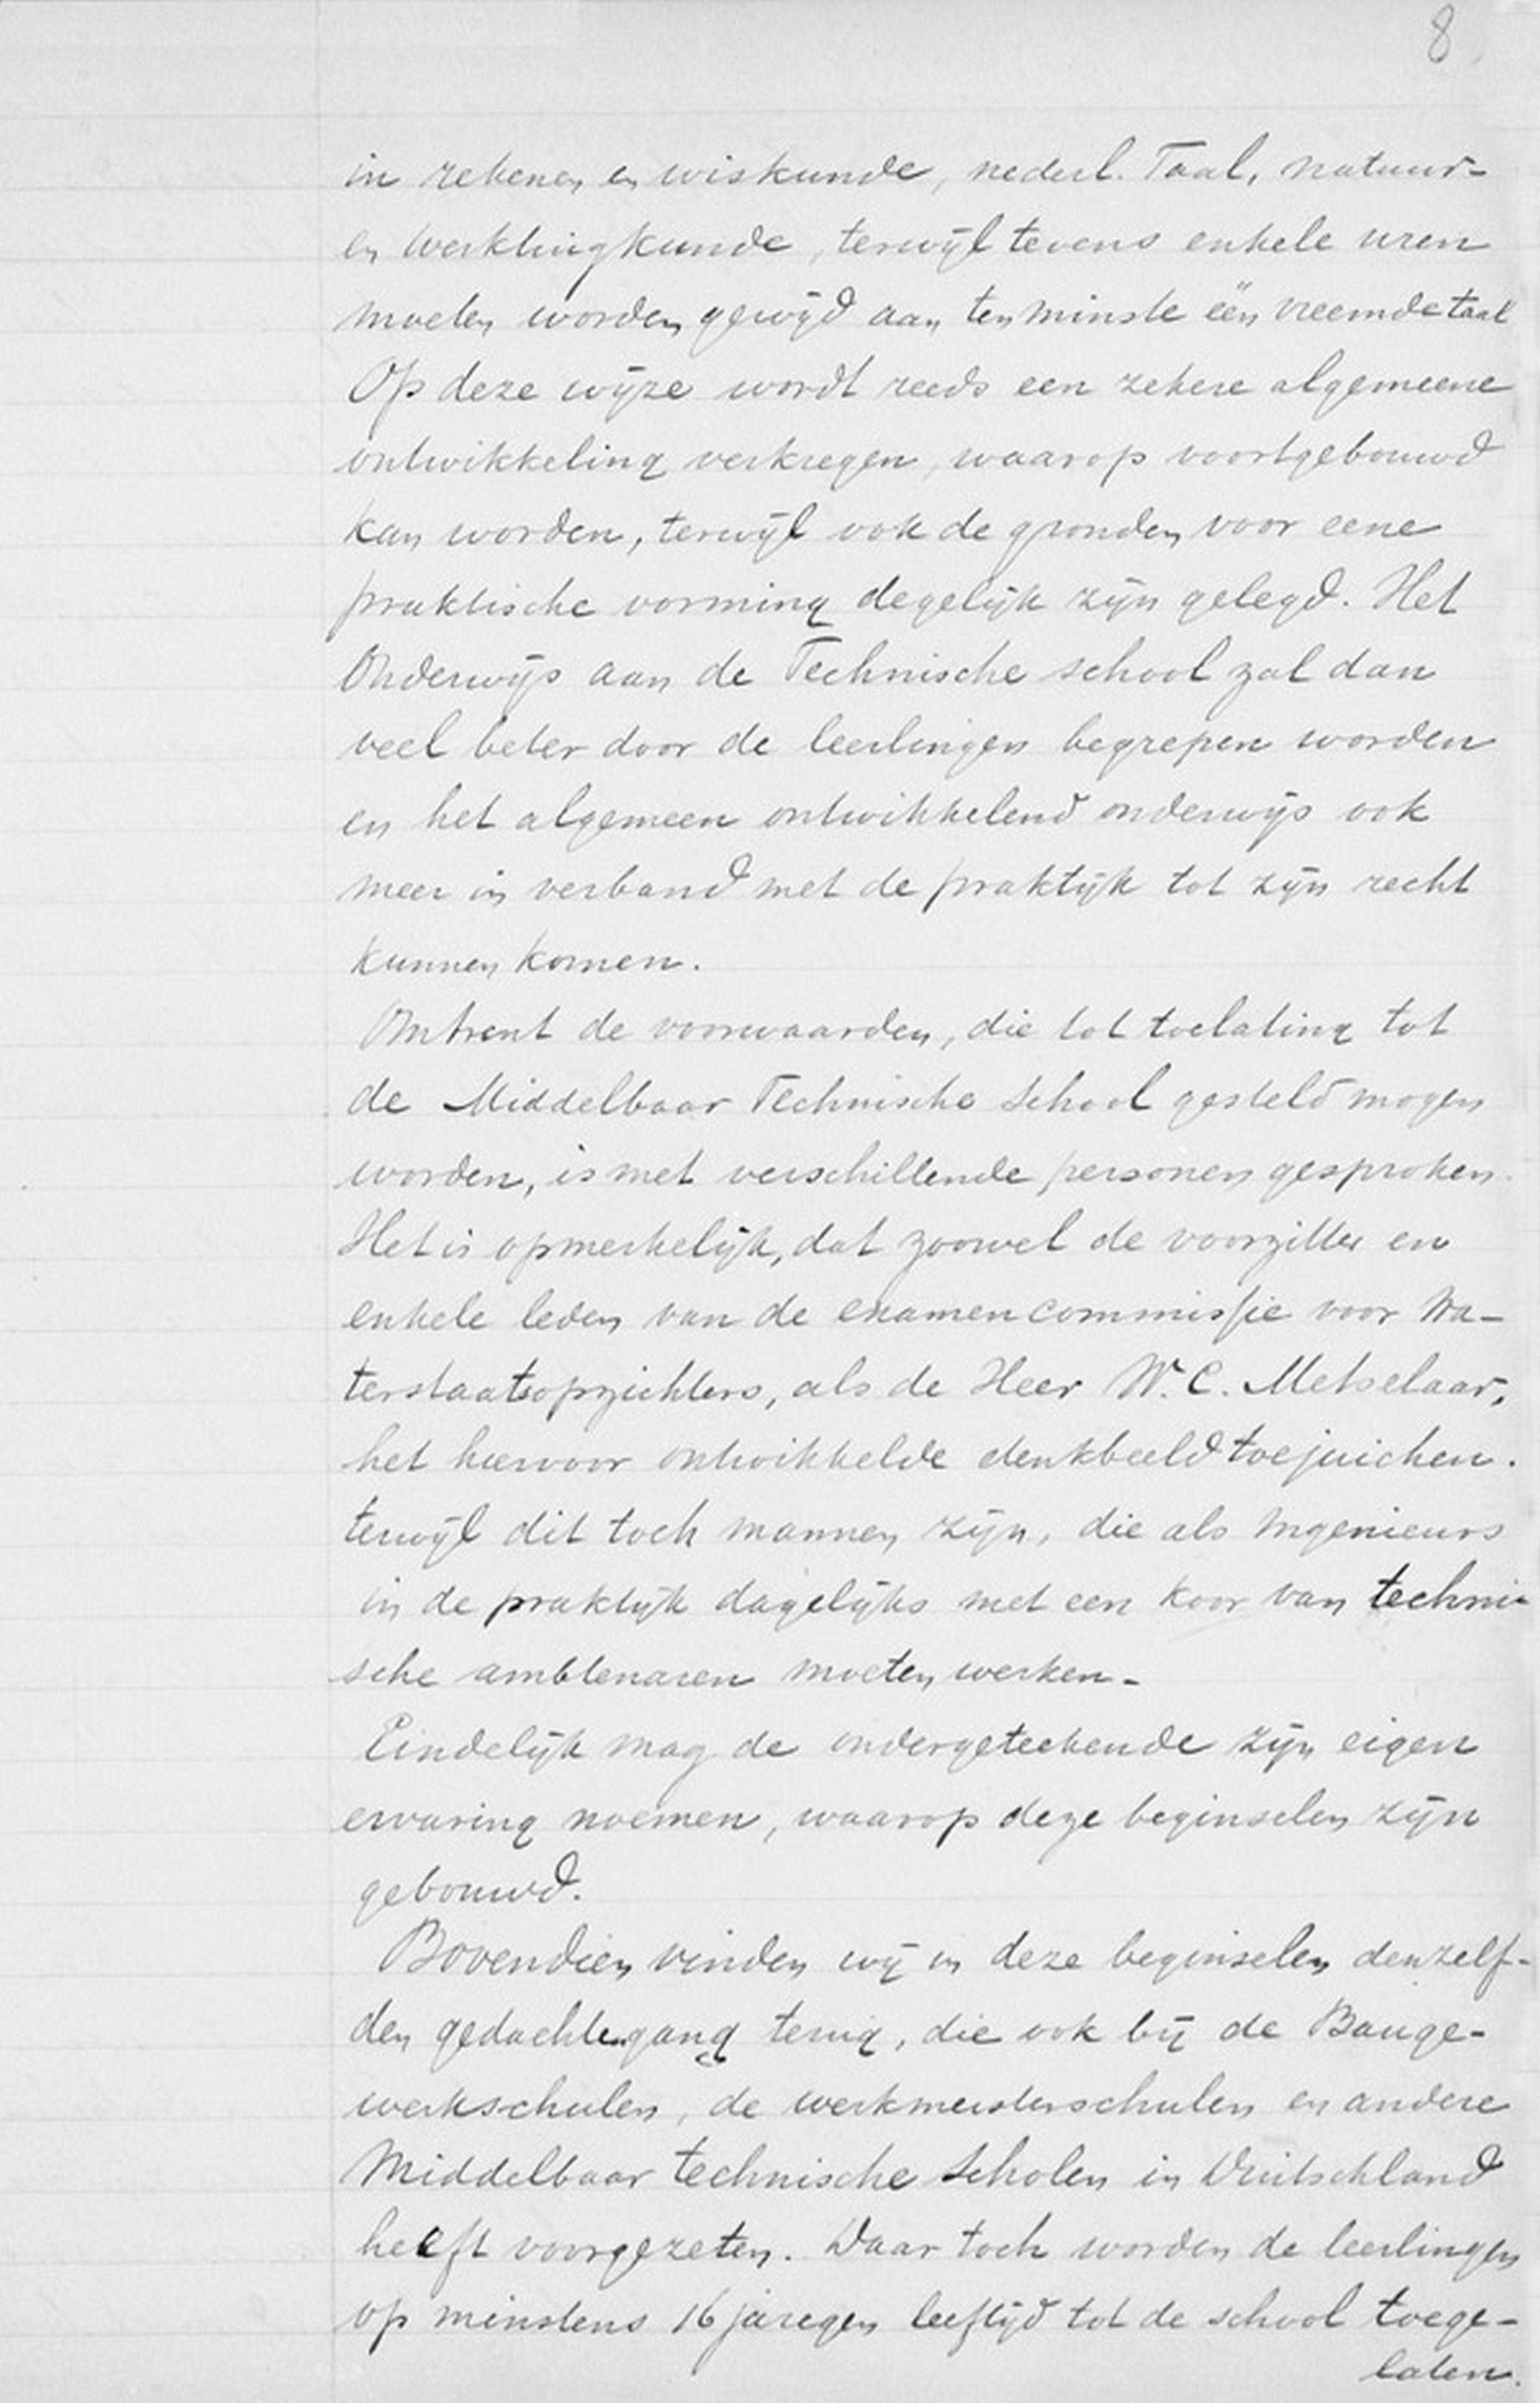 8
in rekenen en wiskunde, nederl. Taal, natuur-
en werktuigkunde, terwijl tevens enkele uren
moeten worden gewijd aan ten minste één vreemde taal
Op deze wijze wordt reeds een zekere algemeene
ontwikkeling verkregen, waarop voortgebouwd
kan worden, terwijl ook de gronden voor eene
praktische vorming degelijk zijn gelegd. Het
Onderwijs aan de Technische school zal dan
veel beter door de leerlingen begrepen worden
en het algemeen ontwikkelend onderwijs ook
meer in verband met de praktijk tot zijn recht
kunnen komen.
Omtrent de voorwaarden, die tot toelating tot
de Middelbaar Technische School gesteld mogen
worden, is met verschillende personen gesproken.
Het is opmerkelijk, dat zoowel de voorzitter en
enkele leden van de examencommissie voor Wa-
terstaatsopzichters, als de Heer W. C. Metselaar,
het hiervoor ontwikkelde denkbeeld toejuichen.
terwijl dit toch mannen zijn, die als Ingenieurs
in de praktijk dagelijks met een koor van techni-
sche ambtenaren moeten werken.
Eindelijk mag de ondergeteekende zijn eigen
ervaring noemen, waarop deze beginselen zijn
gebouwd.
Bovendien vinden wij in deze beginselen denzelf-
den gedachtegang terug, die ook bij de Bauge-
werkschulen, de werkmeisterschulen en andere
Middelbaar technische Scholen in Duitschland
heeft voorgezeten. Daar toch worden de leerlingen
op minstens 16 jaregen leeftijd tot de school toege-
laten.